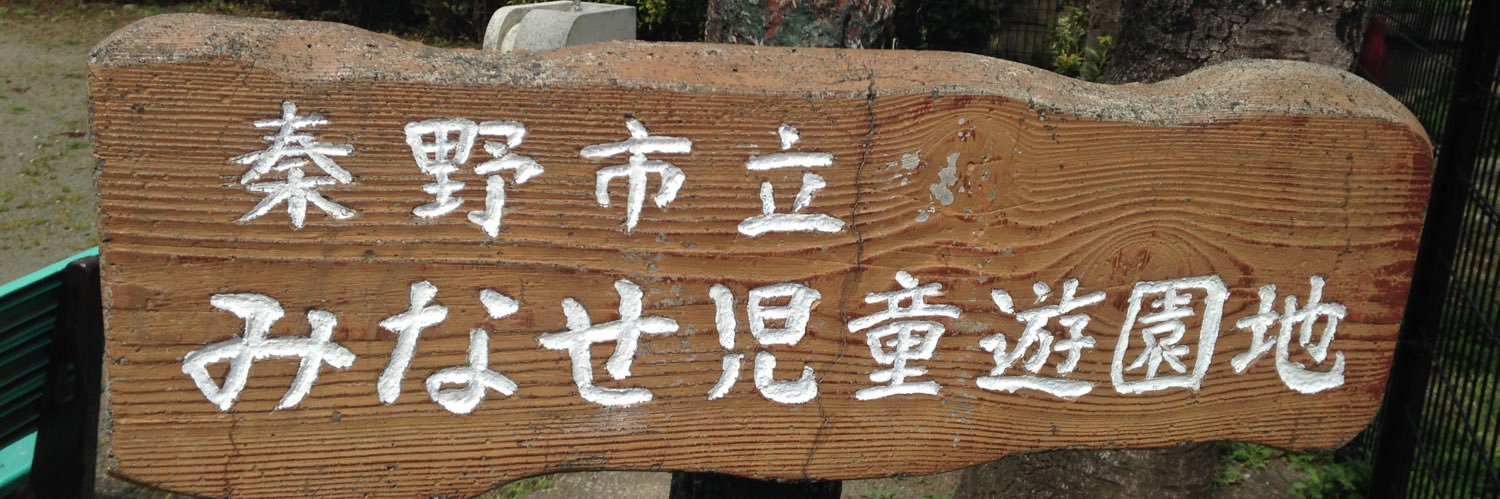 秦野市立
みなせ児童遊園地